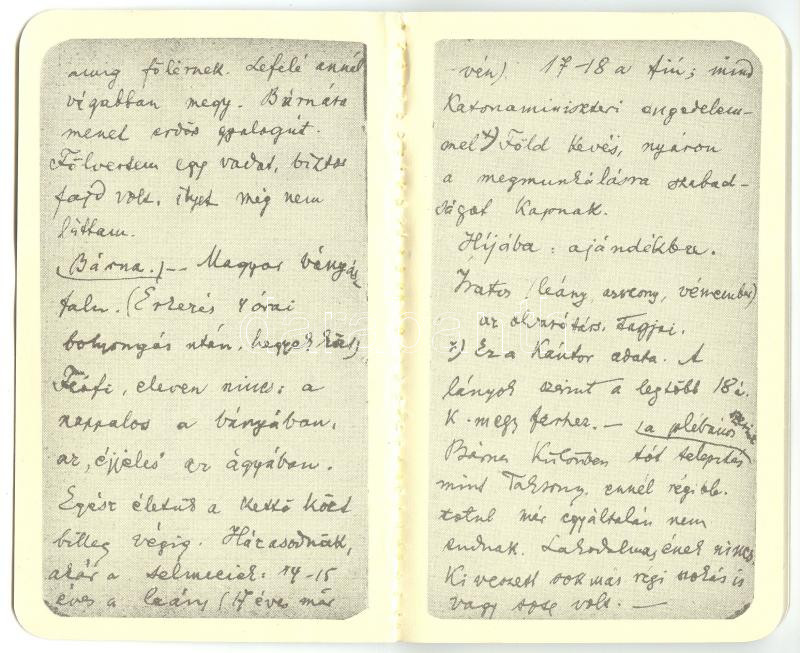 amig fölérnek. Lefelé annál
vigabban megy. Bárnára
menet erdős gyalogút.
Fölvertem egy vadat, biztos
fajd volt, ilyet még nem
láttam.
(Bárna.) — Magyar bányász
falu. (Érkezés 4 órai
bolyongás után, hegyek közt)
Férfi, eleven nincs: a
nappalos a bányában,
az „éjjeles” az ágyában.
Egész életük a kettő közt
billeg végig. Házasodnak,
akár a selmeciek: 14–15
éves a leány (17 éves már
vén). 17–18 a fiú; mind
Katonaminiszteri engedelem-
mel x) Föld kevés, nyáron
a megmunkálásra szabad-
ságot kapnak.
Híjába: ajándékba.
(leány, asszony, vénember)
az olvasótárs. tagjai.
x) Ez a Kántor adata. A
lányok szerint a legtöbb 18 é.
k. megy férhez. — (a plébános szerint
Bárna különben tót település
mint Taksony, ennél régibb.
totul már egyáltalán nem
tudnak. Lakodalmas ének nincs.
Ki veszett sok más régi szokás is
vagy sose volt. —